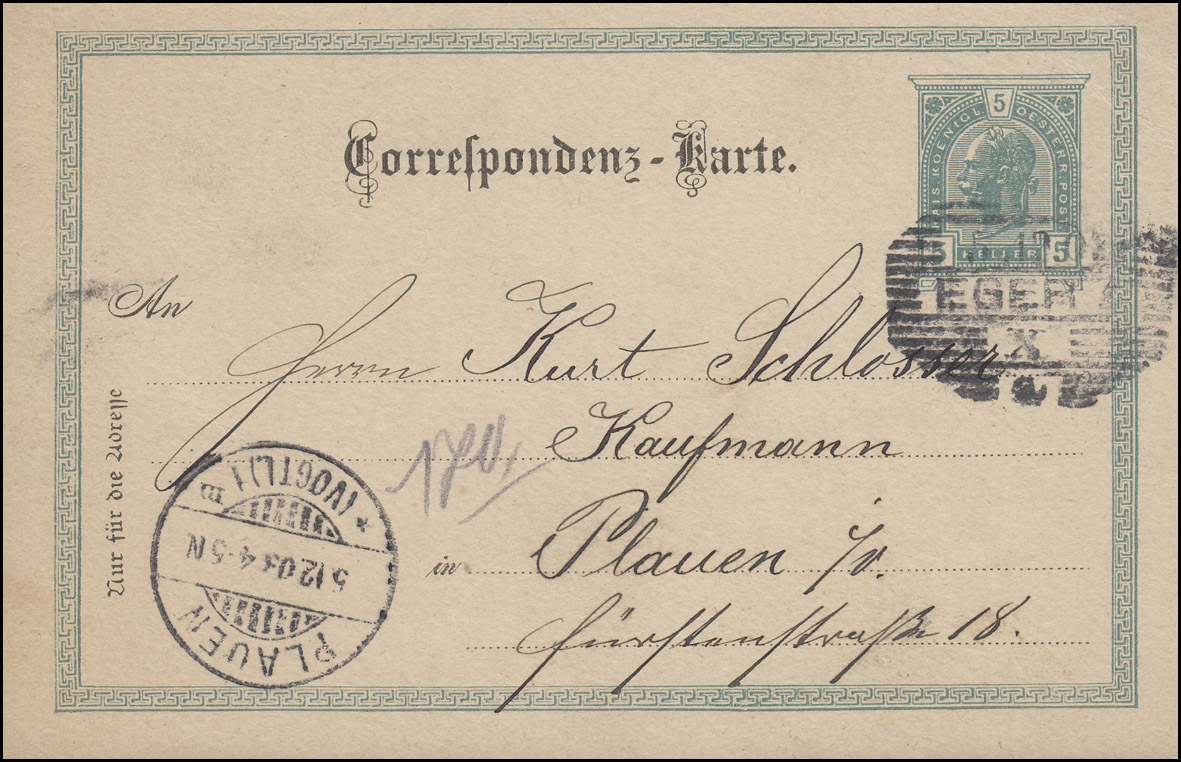 Correspondenz-Karte.
5
KAIS KOENIGL OESTERR POST
5 HELLER 5
5 12
EGER
X
An
Herrn Kurt Schlosser
Kaufmann
in Plauen i/v.
Fürstenstraße 18.
Nur für die Adresse
1701
PLAUEN
5 12 03 4-5 N
* (VOGTL.) 1 m